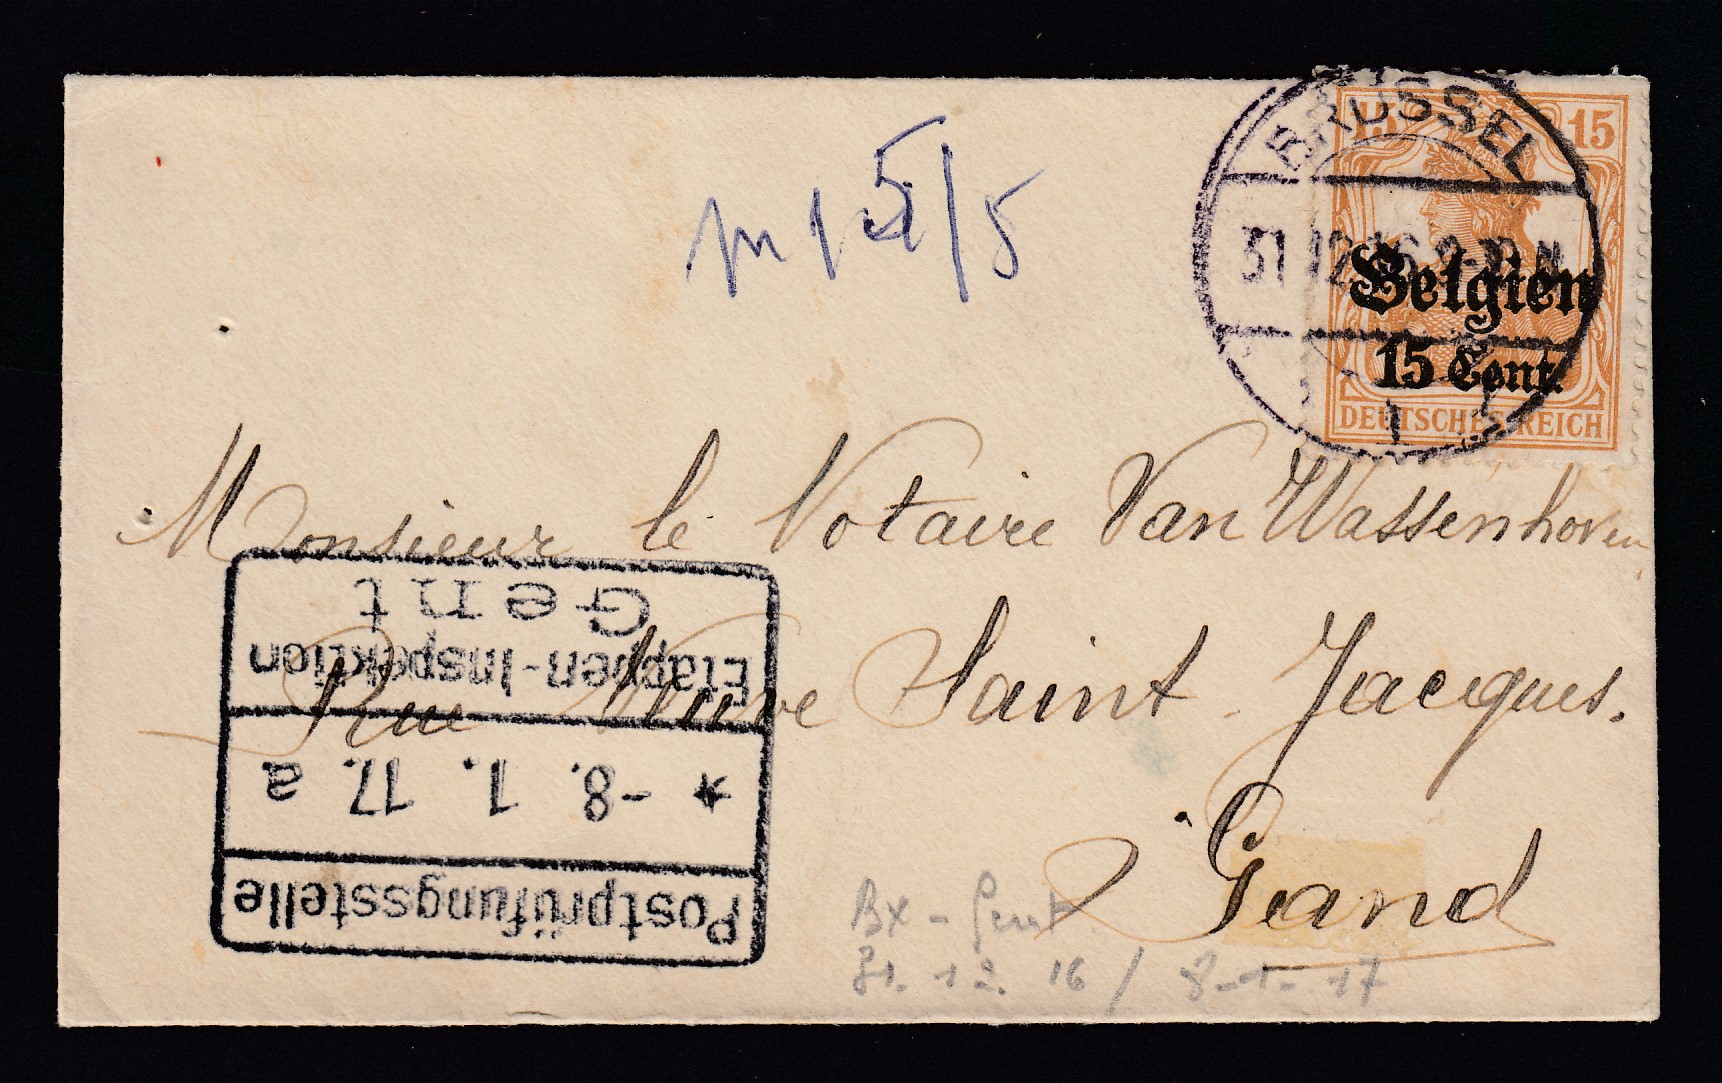 BRÜSSEL
15 15
31 12 16 9-10 N
Belgien
15 Cent.
1
DEUTSCHES REICH
Monsieur le Notaire Van Wassenhoven
Rue Neuve Saint-Jacques.
Gand
Postprüfungsstelle
* -8. 1. 17. a
Etappen-Inspektion
Gent
Bx - Gent
31. 12. 16 / 8-1-17